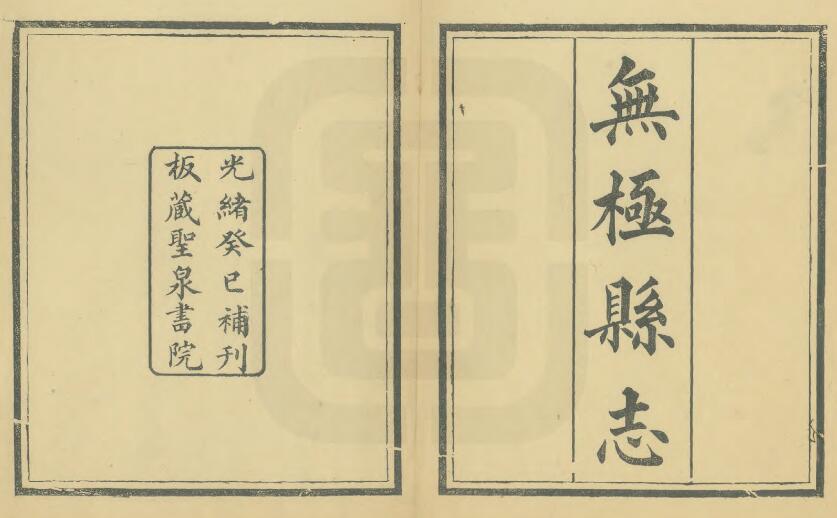 無極縣志
光緒癸巳補刊
板藏聖泉書院